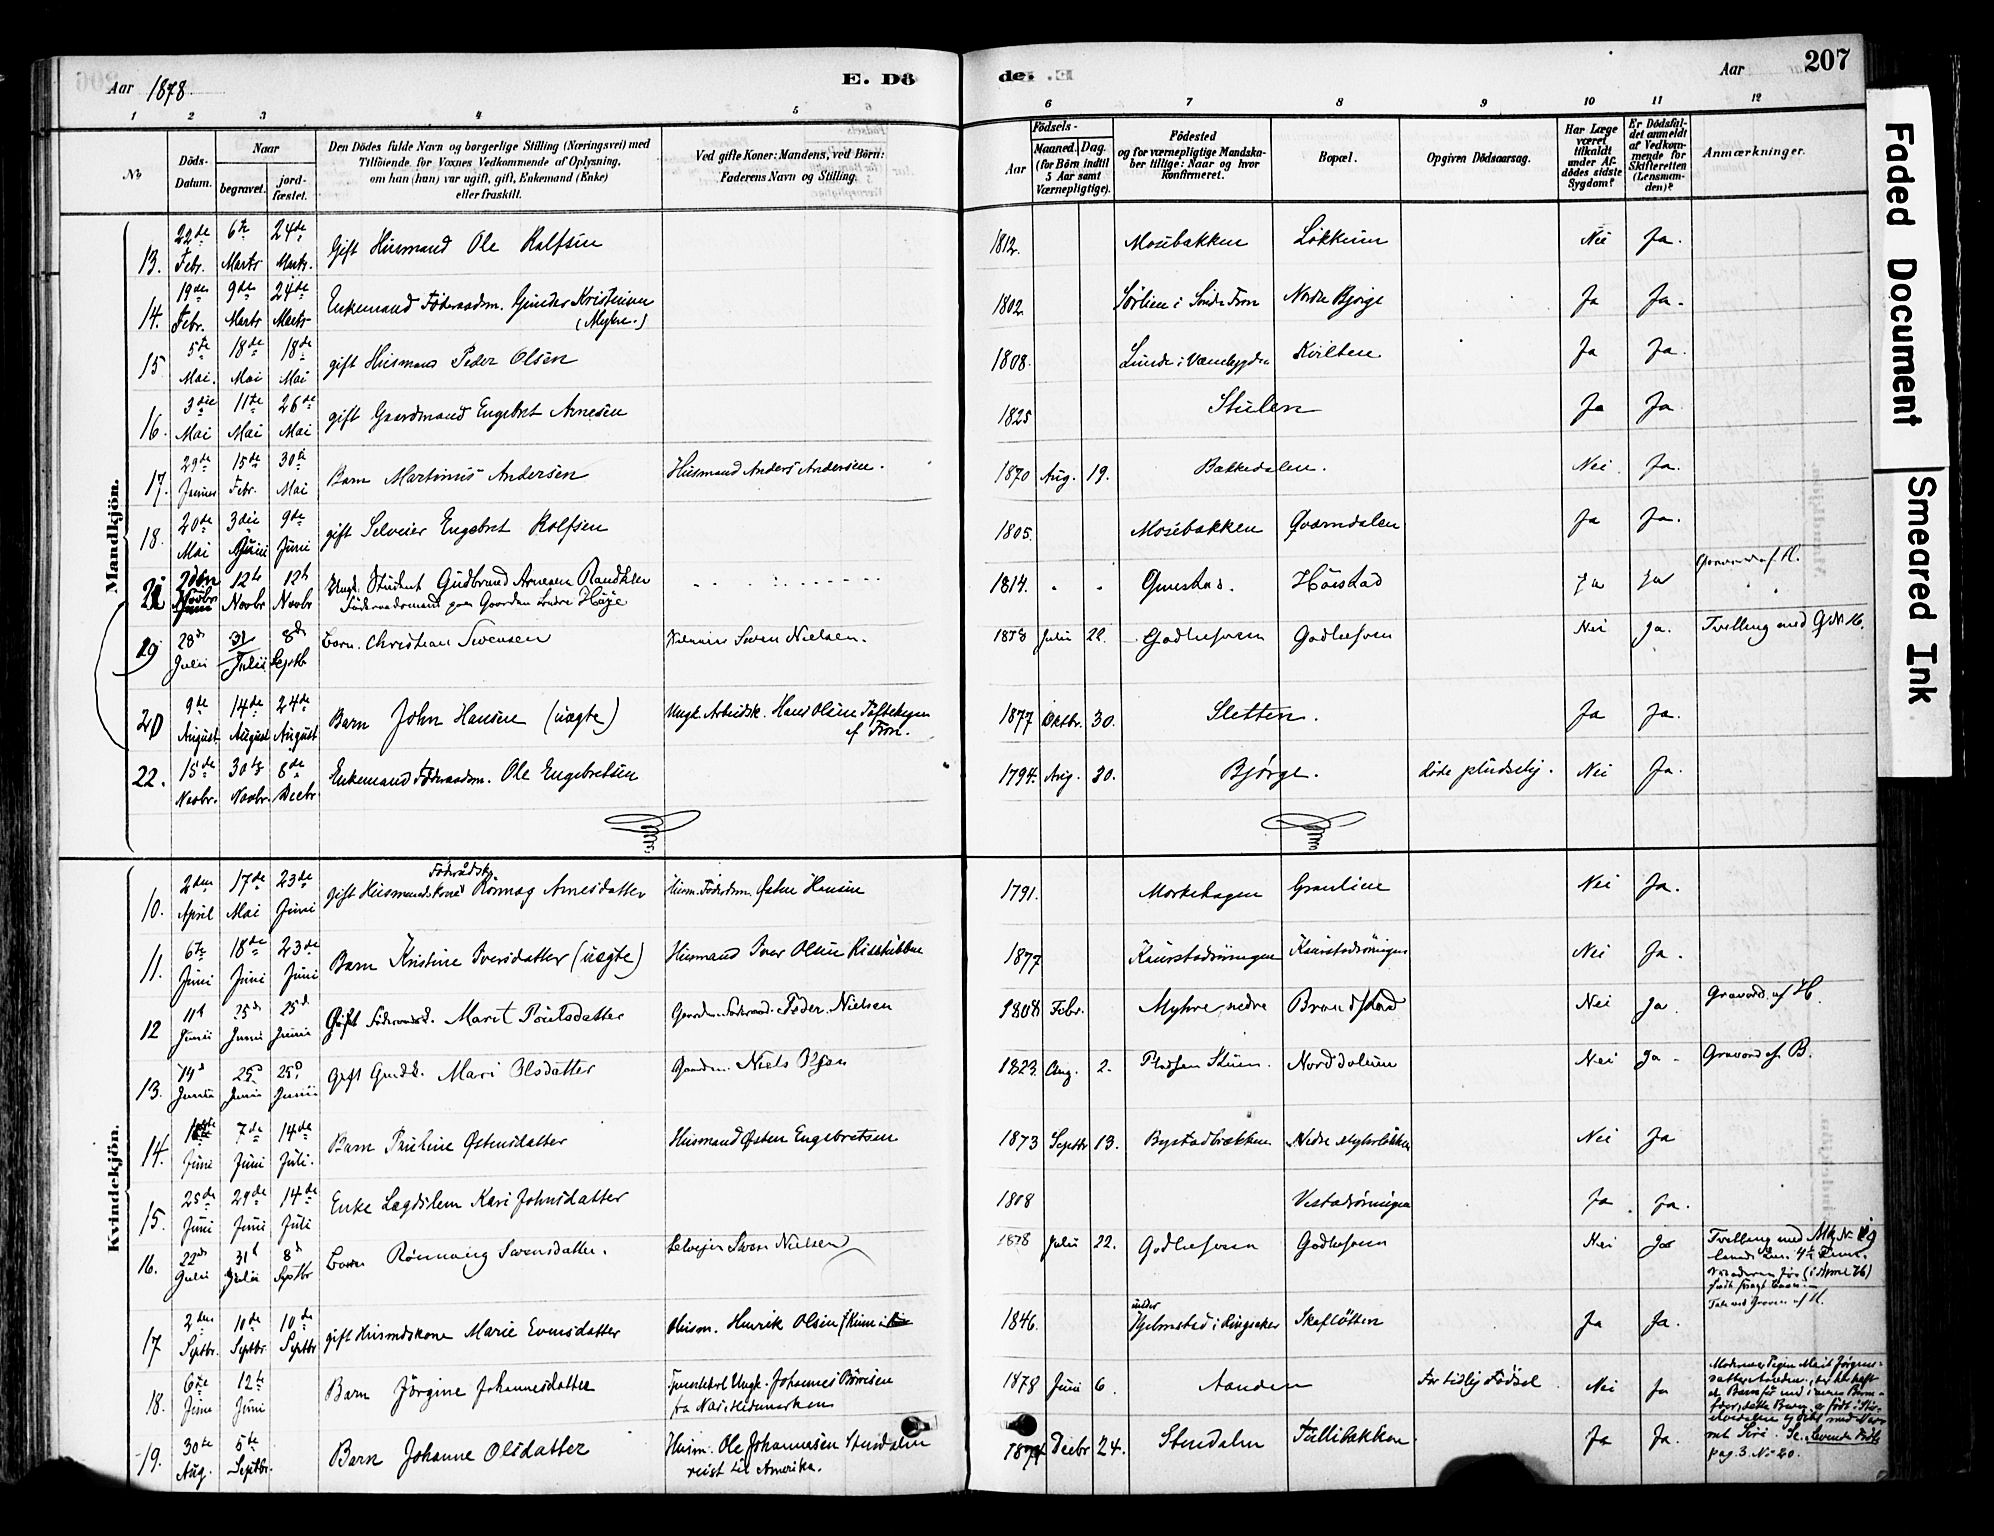 Aar 1878.
E. Dö
de: E.
Aar
207
1 2 3 4 5 6 7 8 9 10 11 12
No
Döds-Datum.
Naar
begravet.
jord-fæstet.
Den Dödes fulde Navn og borgerlige Stilling (Næringsvei) med
Tilföiende, for Voxnes Vedkommende af Oplysning,
om han (hun) var ugift, gift, Enkemand (Enke)
eller fraskilt.
Ved gifte Koner: Mandens, ved Börn:
Faderens Navn og Stilling.
Födsels-
Aar
Maaned.
Dag.
(for Börn indtil
5 Aar samt
Værnepligtige).
Födested
og for værnepligtige Mandska-
ber tillige: Naar og hvor
konfirmeret.
Bopæl.
Opgiven Dödsaarsag.
Har Læge
været
tilkaldt
under Af-
dödes sidste
Sygdom?
Er Dödsfal-
det anmeldt
af Vedkom-
mende for
Skifteretten
(Lensman-
den)?
Anmærkninger.
Mandkjön.
13. 22de Febr. 6te Marts 24de Marts. Gift Husmand Ole Rolfsen 1812. Mosebakken Løkkum Nei Ja.
14. 19de Febr. 9de Marts 24de Marts Enkemand Föderaadsm. Gunder Kristiansen (Myhre.) 1802. Sörlien i Søndre Fron Nordre Bjørge Ja Ja.
15. 5te Mai. 18de Mai 18de Mai gift Husmand Peder Olsen 1808. Lunde i Kvilten Ja Ja.
16. 3die Mai 11te Mai 26de Mai gift Gaardmand Engebret Arnesen 1825 Stulen Ja Ja.
17. 29de Januar 15de Febr. 30te Mai Barn Martinus Andersen Husmand Anders Andersen. 1870 Aug. 19. Bakkedalen. Nei. Ja.
18. 20de Mai 3die Juni 9de Juni gift Selveier Engebret Rolfsen 1805. Mosebakken Qværndalen Ja Ja.
21 Novbr 12te Novbr 12te Novbr Ungk. Student Gudbrand Arnesen Randklev Föderaadsmand paa Gaarden Søndre Høje 1814. Høistad Ja Ja af H.
19 28de Julii 31 Julii 8de Septb Barn. Christian Svensen Svend Nielsen. 1878 Julii 22. Godlifoven Godlifoven Nei Ja. Tvilling med Q. N 16.
20 9de August 14de August 24de August Barn John Hansen (uægte) Ungk. Arbeidsk. Hans Olsen af Fron. 1877 Oktbr. 30. Sletten. Ja Ja.
22. 15de Novbr. 30te Novbr. 8de Decbr Enkemand Föderaadsm. Ole Engebretsen 1794. Aug. 30. Bjørge. döde pludselig. Nei Ja.
Kvindekjön.
10. 2den April 17de Mai 23de Juni gift Husmandskone Föderådsk. Rönnog Arnesdatter Husm. Föderdsm. Østen Hansen 1791. Morkehagen Granlien Nei Ja.
11. 6te Juni 18de Juni 23de Juni Barn Kristine Iversdatter (uægte) Husmand Iver Olsen 1877 Kaurstadrøningen Kaurstadrøningen Nei Ja.
12 11te Junii 25de Junii 25de Junii Gift Marit Poulsdatter Peder Nielsen 1808 Febr. Myhre nedre Brandstad Nei Ja. Gravord af H.
13. 14de Junii 25de Junii 25de Junii Gift Gmdk. Mari Olsdatter Gaardm. Niels Olsen 1823. Aug. 2. Pladsen Norddalen Nei Ja. Gravord af B.
14. Juni 7de Juni 14de Juli. Barn Pauline Østensdatter Husmand Østen Engebretsen 1873 Septbr 13. Bystadbakken Nedre Myhrbakken Nei Ja
15. 25de Juni 29de Juni 14de Juli Enke Lægdslem Kari Johnsdatter 1808 Vestadrøningen Ja. Ja.
16. 22de Julii 31te Julii 8de Septbr Barn Rönnaug Svensdatter. Selvejer Sven Nielsen 1878 Julii 22. Godlifoven Godlifoven Nei Ja Tvilling med Mk. N: 19
Tale ved Graven af H.
17 2den Septbr. 10de Septbr. 10de Septbr gift Husmdskone Marie Evensdatter Husm. Henrik Olsen 1846. under Hjelmstad i Ringsaker Skafløtten Ja Ja.
18. 6te Juni 12te Juni Barn Jörgine Johannesdatter Tjenstkarl Ungk. Johannes Börresen fra Næs Hedemarken 1878 Juni 6. Aanden For tidlig Födsel Nei Ja Moderen Pigen Marit Jørgens-
datter Aanden, har før havt
pag. 3. No 20.
19. 30te Aug. 5te Septbr. Barn Johanne Olsdatter Husm. Ole Johannesen Stendalen reist til Amerika. 1874 Decbr 24. Stendalen Tullibakken. Ja Ja.
Faded Document
Smeared Ink